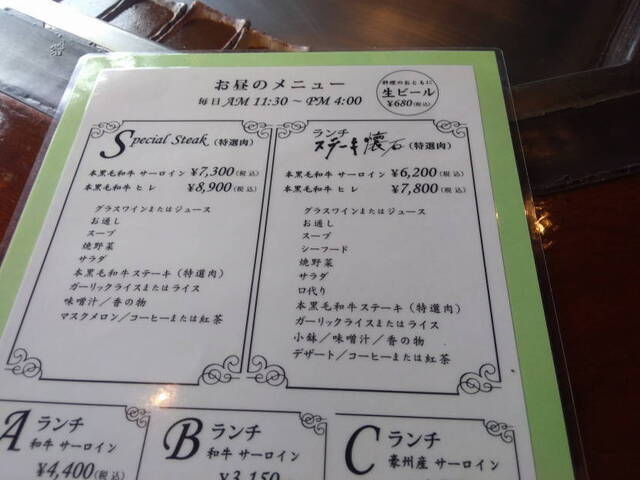 お昼のメニュー
毎日 AM 11:30 ~ PM 4:00
料理のおともに
生ビール
¥680(税込)
Special Steak (特選肉)
本黒毛和牛 サーロイン ¥7,300(税込)
本黒毛和牛 ヒレ ¥8,900(税込)
グラスワインまたはジュース
お通し
スープ
焼野菜
サラダ
本黒毛和牛ステーキ(特選肉)
ガーリックライスまたはライス
味噌汁/香の物
マスクメロン/コーヒーまたは紅茶
ランチ
ステーキ懐石 (特選肉)
本黒毛和牛 サーロイン ¥6,200(税込)
本黒毛和牛 ヒレ ¥7,800(税込)
グラスワインまたはジュース
お通し
スープ
シーフード
焼野菜
サラダ
口代り
本黒毛和牛ステーキ(特選肉)
ガーリックライスまたはライス
小鉢/味噌汁/香の物
デザート/コーヒーまたは紅茶
A ランチ
和牛 サーロイン
¥4,400(税込)
B ランチ
和牛 サーロイン
¥3,150
C ランチ
豪州産 サーロイン